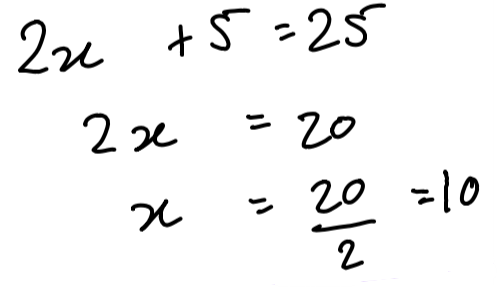 2x + 5 = 25
2x = 20
x = 20/2 = 10